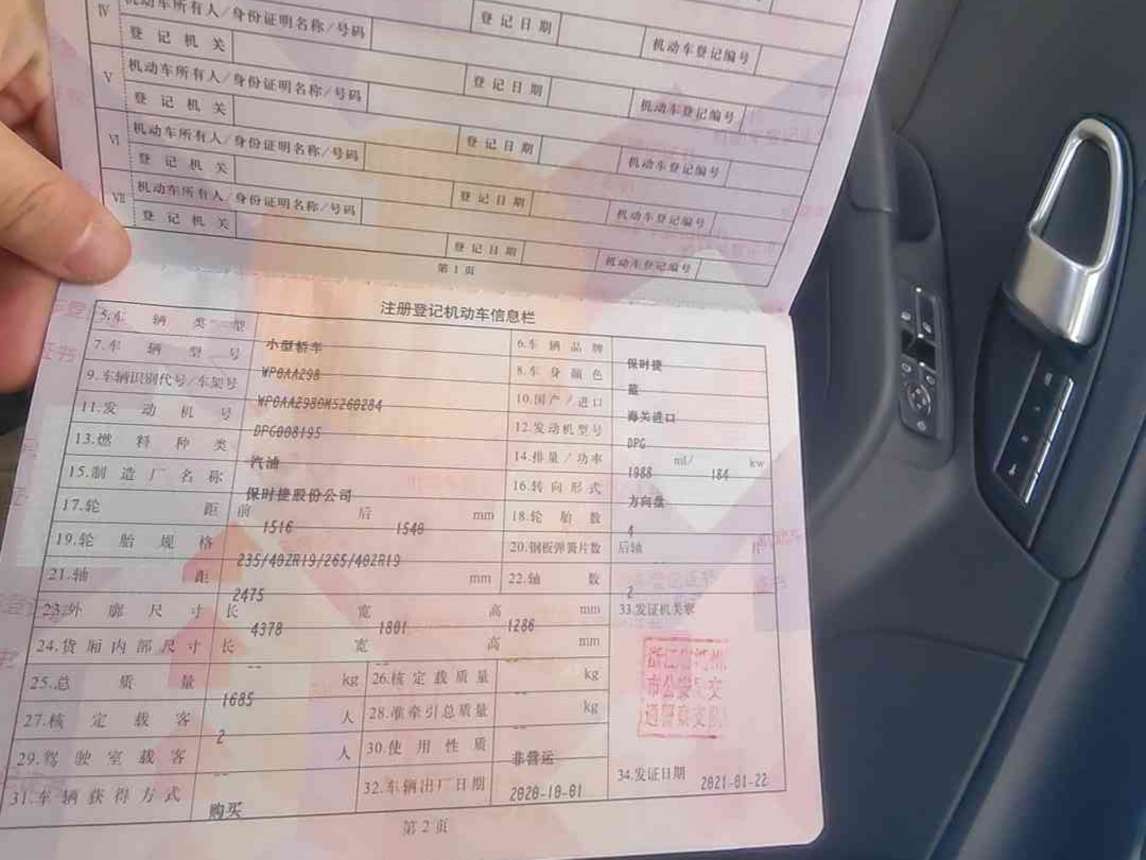 IV 机动车所有人/身份证明名称/号码 登记日期 机动车登记编号
登记机关
V 机动车所有人/身份证明名称/号码 登记日期 机动车登记编号
登记机关
VI 机动车所有人/身份证明名称/号码 登记日期 机动车登记编号
登记机关
VII 机动车所有人/身份证明名称/号码 登记日期 机动车登记编号
登记机关 登记日期 机动车登记编号
第1页
注册登记机动车信息栏
5.车辆类型 小型轿车 6.车辆品牌 保时捷
7.车辆型号 WP0AA298 8.车身颜色 蓝
9.车辆识别代号/车架号 WP0AA2980MS260284 10.国产/进口 海关进口
11.发动机号 DPG008195 12.发动机型号 DPG
13.燃料种类 汽油 14.排量/功率 1988 ml/ 184 kw
15.制造厂名称 保时捷股份公司 16.转向形式 方向盘
17.轮距 前 1516 后 1540 mm 18.轮胎数 4
19.轮胎规格 235/40ZR19/265/40ZR19 20.钢板弹簧片数 后轴 --
21.轴距 2475 mm 22.轴数 2
23.外廓尺寸 长 4378 宽 1801 高 1286 mm 33.发证机关章
24.货厢内部尺寸 长 -- 宽 -- 高 -- mm
25.总质量 1685 kg 26.核定载质量 -- kg
27.核定载客 2 人 28.准牵引总质量 -- kg
29.驾驶室载客 -- 人 30.使用性质 非营运
31.车辆获得方式 购买 32.车辆出厂日期 2020-10-01 34.发证日期 2021-01-22
市公安局交
通警察支队
第2页